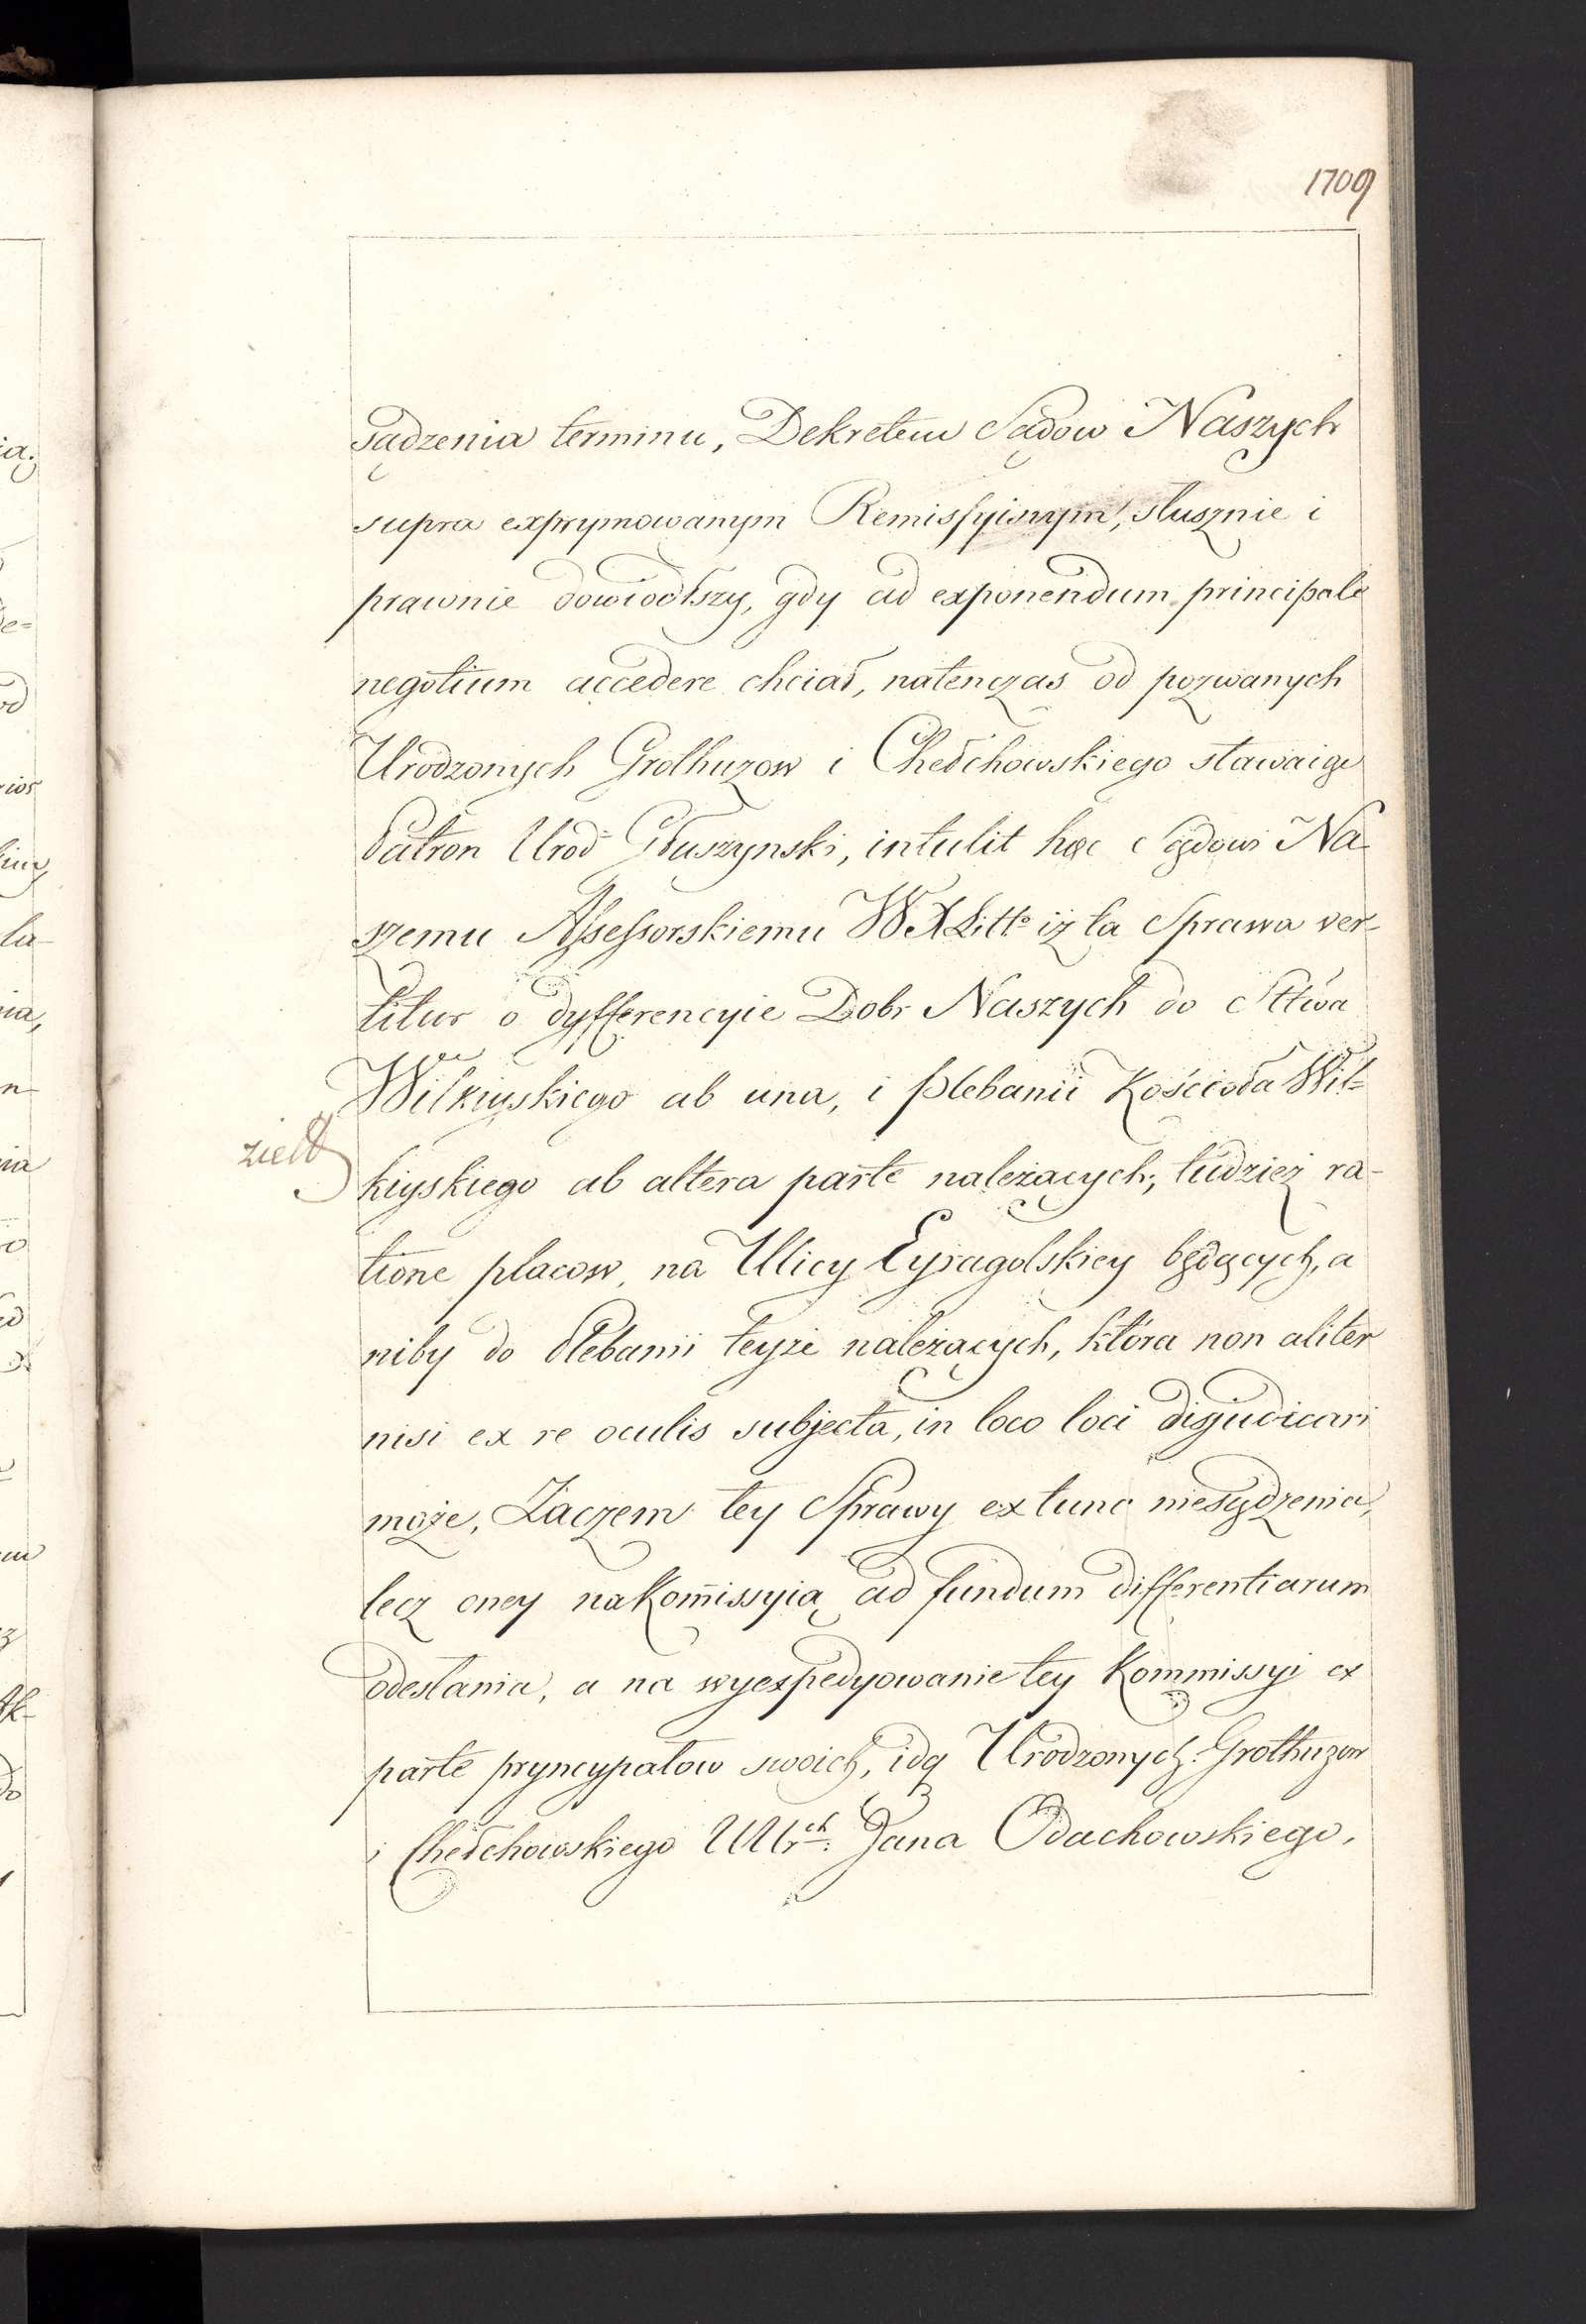 1709
sądzenia terminu, Dekretem Sądow Naszych
supra exprymowanym Remissyinym, słusznie i
prawnie dowiodłszy, gdy ad exponendum principale
negotium accedere chciał, natenczas od pozwanych
Urodzonych Grothuzow i Chełchowskiego stawaiąc
Patron Urod: Głuszynski, intulit hæc Sądowi Na-
szemu Assessorskiemu WXLitto iż ta Sprawa ver-
titur o dyfferencyie Dobr Naszych do Sttwa
Wilkiyskiego ab una, i Plebanii Kościoła Wil=
kiyskiego ab altera parte należących, tudzież ra-
tione placow na Ulicy Eyragolskiey będących, a
niby do Plebanii teyże należących, która non aliter
nisi ex re oculis subjecta, in loco loci dijudicari
może, Zaczem tey Sprawy ex tunc niesądzenia,
lecz oney na Kom̃issyią ad fundum differentiarum
odesłania, a na wyexpedyowanie tey Kommissyi ex
parte pryncypałow swoich, idq Urodzonych Grothuzow
i Chełchowskiego UUrch: Jana Odachowskiego,